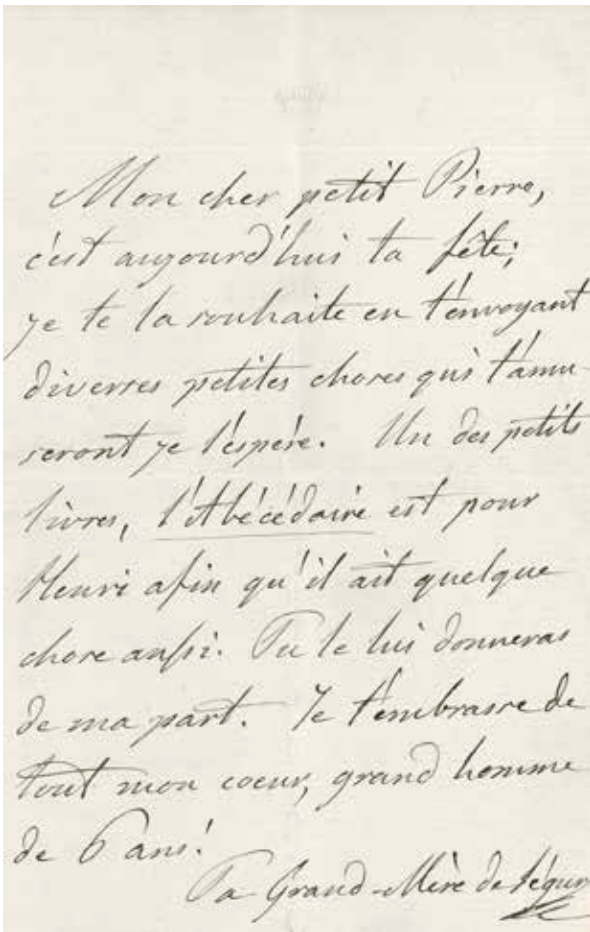 Mon cher petit Pierre,
c'est aujourd'hui ta fête;
je te la souhaite en t'envoyant
diverses petites choses qui t'amu-
seront je l'espére. Un des petits
livres, l'Abécédaire est pour
Henri afin qu'il ait quelque
chose aussi. Tu le lui donneras
de ma part. Je t'embrasse de
tout mon coeur, grand homme
de 6 ans!
Ta Grand-Mère de Ségur